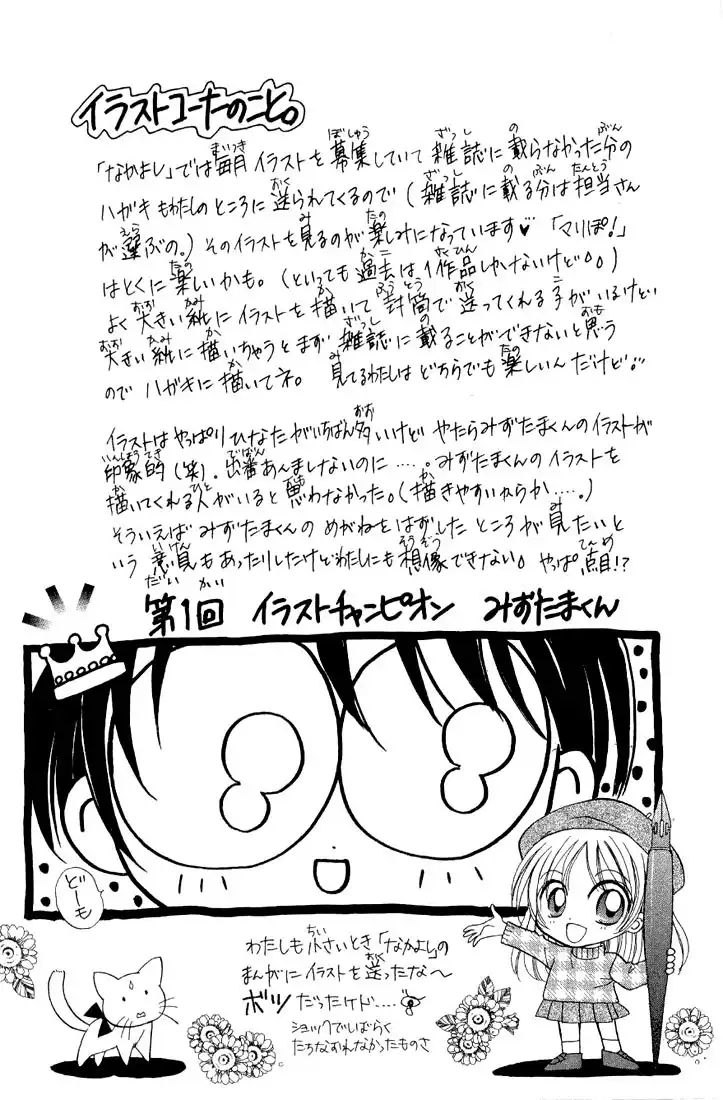 イラストコーナーのこと。
「なかよし」では毎月イラストを募集していて 雑誌に載らなかった分の
ハガキもわたしのところに送られてくるので(雑誌に載る分は担当さん
が選ぶの。)そのイラストを見るのが楽しみになっています♥「マリぽ!」
はとくに楽しいかも。(といっても過去は1作品しかないけど。。)
よく大きい紙にイラストを描いて封筒で送ってくれる子がいるけど
大きい紙に描いちゃうとまず雑誌に載ることができないと思う
のでハガキに描いてネ。 見てるわたしはどちらでも楽しいんだけど
イラストはやっぱりひなたがいちばん多いけど やたらみずたまくんのイラストが
印象的(笑)。出番あんましないのに……。みずたまくんのイラストを
描いてくれる人がいると思わなかった。(描きやすいからか…。)
そういえばみずたまくんの めがねをはずしたところが見たいと
いう意見もあったりしたけどわたしにも想像できない。やっぱ点目!?
第1回 イラストチャンピオン みずたまくん
どーも
わたしも小さいとき「なかよし」の
まんがにイラストを送ったな〜
ボツだったケド……
ショックでしばらく
たちなおれなかったものさ